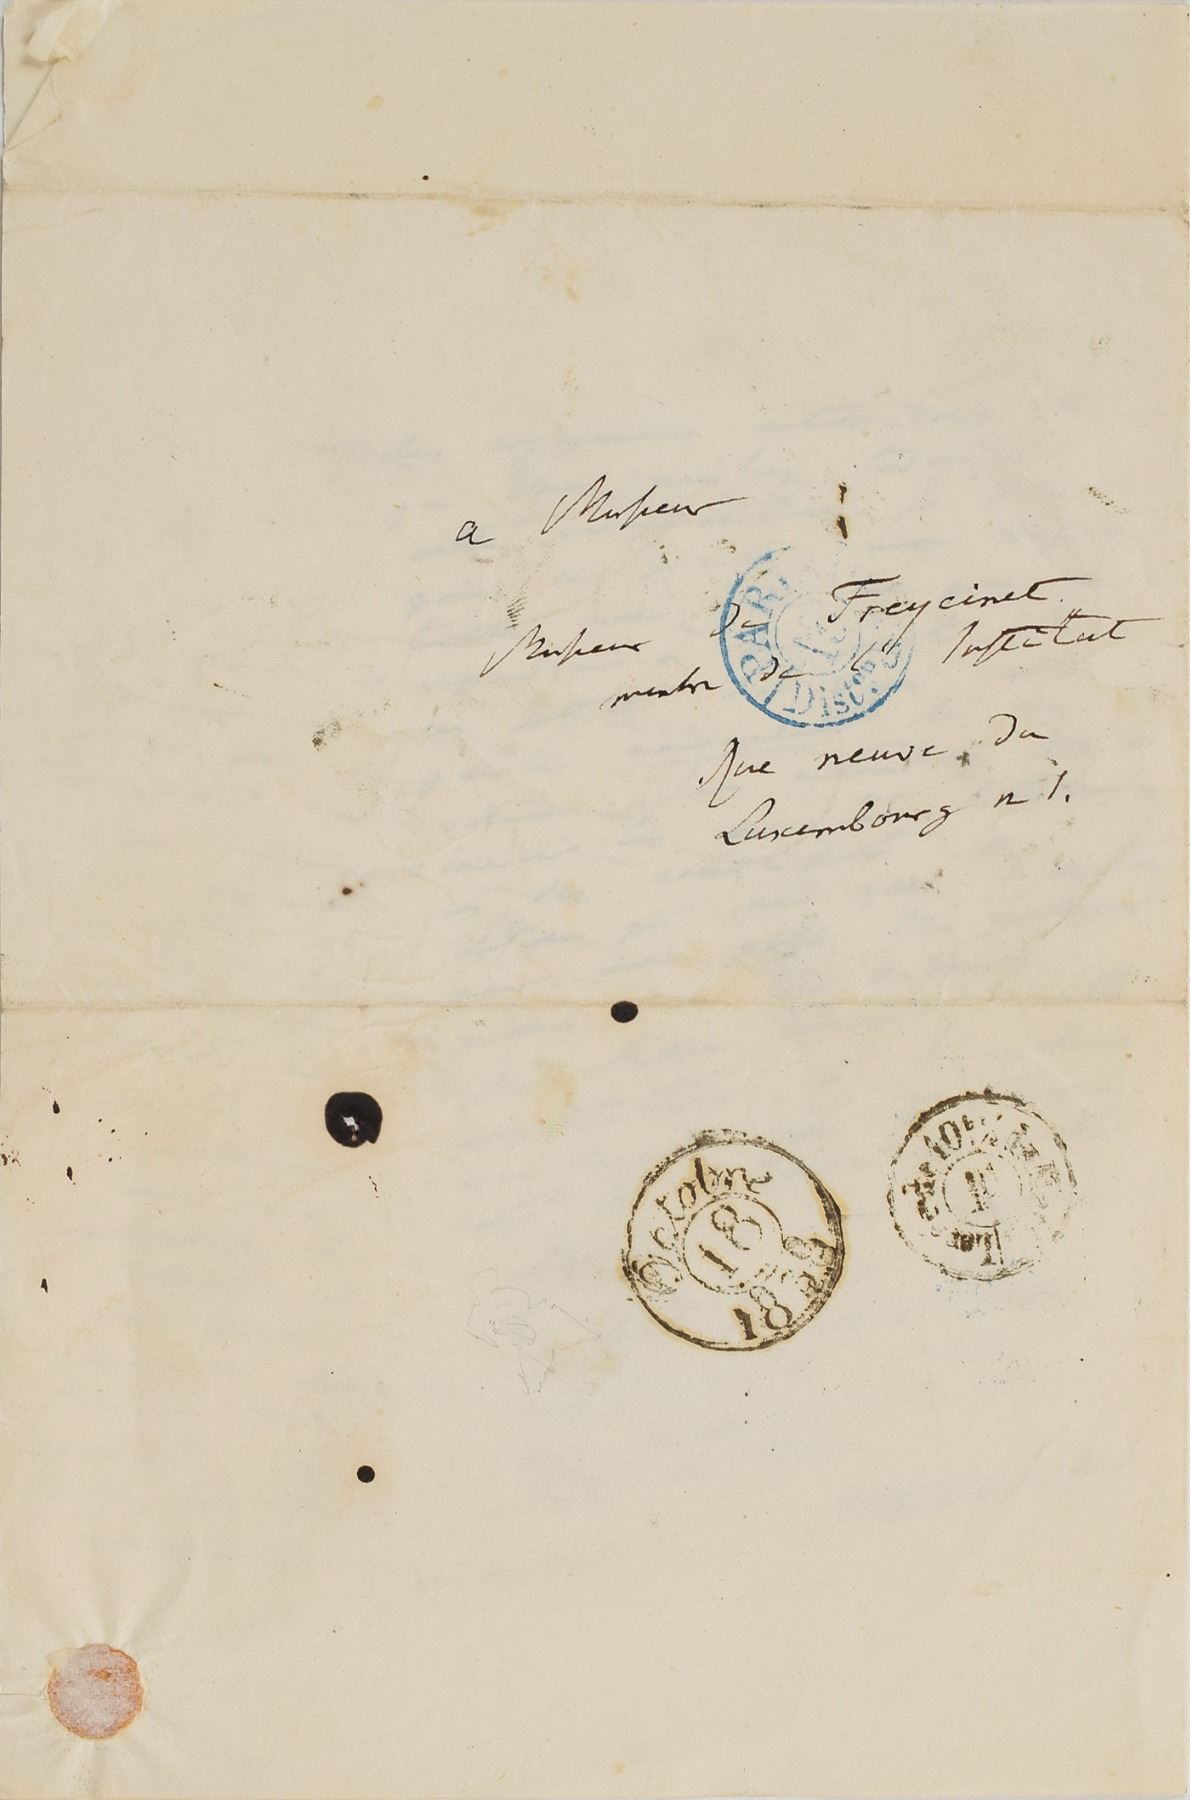 a Monsieur
Monsieur de Freycinet
membre de l'Institut
Rue neuve du
Luxembourg n 1.
PAR
Dist.on
Octobre
18
1828